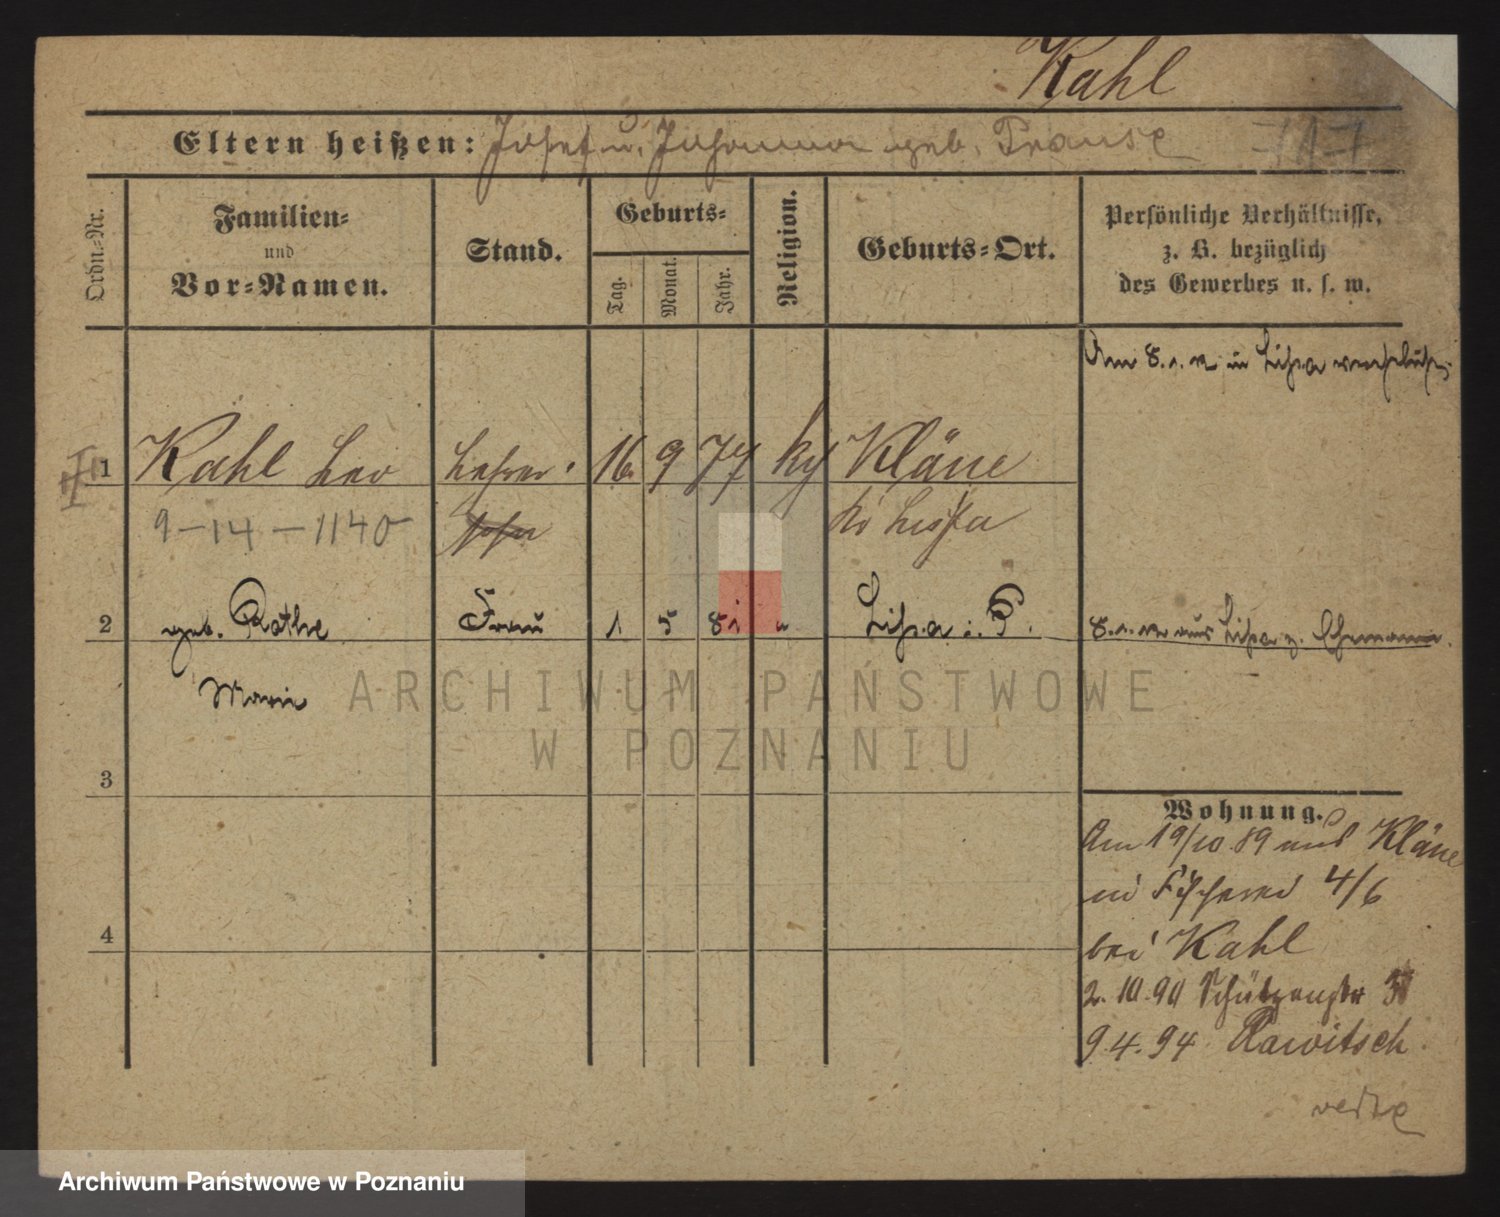 Kahl
Eltern heißen: Josef u. Johanna geb. Prause
Ordn.-Nr.
Familien-
und
Vor-Namen.
Stand.
Geburts-
Tag.
Monat.
Jahr.
Religion.
Geburts-Ort.
Persönliche Verhältnisse,
z. B. bezüglich
des Gewerbes u. s. w.
Am 8.1.12 in Lissa
1 Kahl Leo Lehrer 16. 9 77 Kläne
9-14-1140 Kr Lissa
2 geb. Rothe Frau 1 5 81 " Lissa i. P. 8.1.12 aus Lissa z. Ehemann.
Marie
3
4
Wohnung.
Am 19/10 89 aus Kläne
in Fischerei 4/6
bei Kahl
2.10.90 Schützenstr
9.4.94 Rawitsch
ARCHIWUM PAŃSTWOWE
W POZNANIU
Archiwum Państwowe w Poznaniu